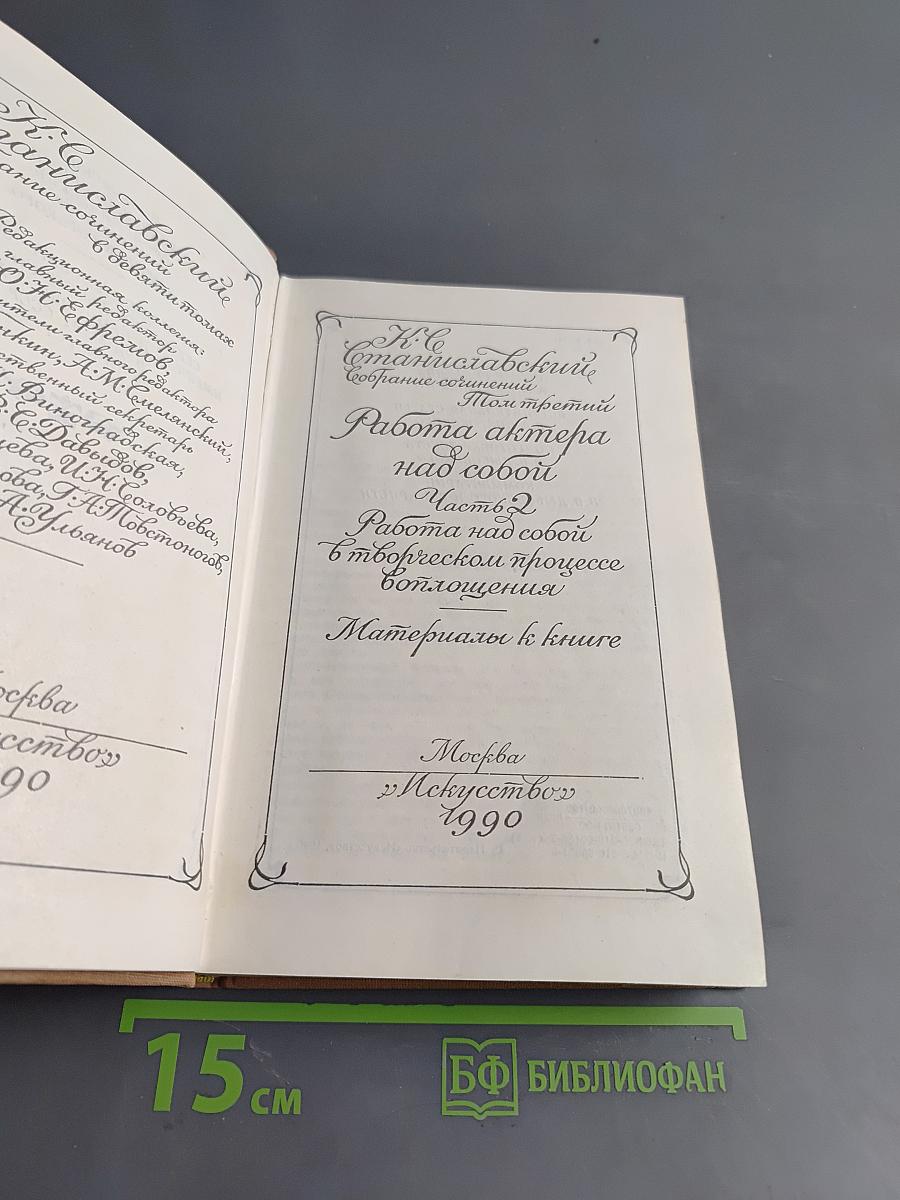 К. С
Станиславский
Собрание сочинений
в девяти томах
Редакционная коллегия:
главный редактор
О. Н. Ефремов,
главного редактора
А. М. Смелянский,
секретарь
Виноградская,
С. Давыдов,
И. Н. Соловьева,
Г. А. Товстоногов,
А. Ульянов
Москва
«Искусство»
1990
К. С
Станиславский
Собрание сочинений
Том третий
Работа актера
над собой
Часть 2
Работа над собой
в творческом процессе
воплощения
Материалы к книге
Москва
«Искусство»
1990
15 см
БФ БИБЛИОФАН